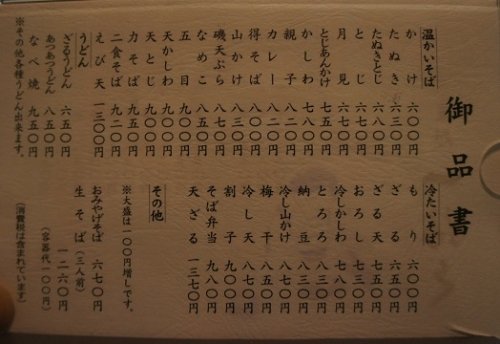 御品書
温かいそば
かけ 六〇〇円
たぬき 六三〇円
たぬきとじ 六八〇円
とじ 六七〇円
月見 六七〇円
とじあんかけ 七五〇円
かしわ 七八〇円
親子
カレー
得そば
山かけ
磯天ぷら
なめこ
五目
天かしわ
天とじ
力そば
二食そば
えび天 一三〇〇円
うどん
ざるうどん 六五〇円
あつあつうどん
なべ焼 九五〇円
※その他各種うどん出来ます。
冷たいそば
もり 六〇〇円
ざる 六五〇円
ざる天
おろし 七五〇円
冷しかしわ 七八〇円
とろろ 八三〇円
納豆 八三〇円
冷し山かけ
梅干
冷し天
割子 九〇〇円
そば弁当 九八〇円
天ざる 一三七〇円
※大盛は一〇〇円増しです。
その他
おみやげそば 六七〇円
生そば(三人前) 一二六〇円
(容器代一〇〇円)
(消費税は含まれています)